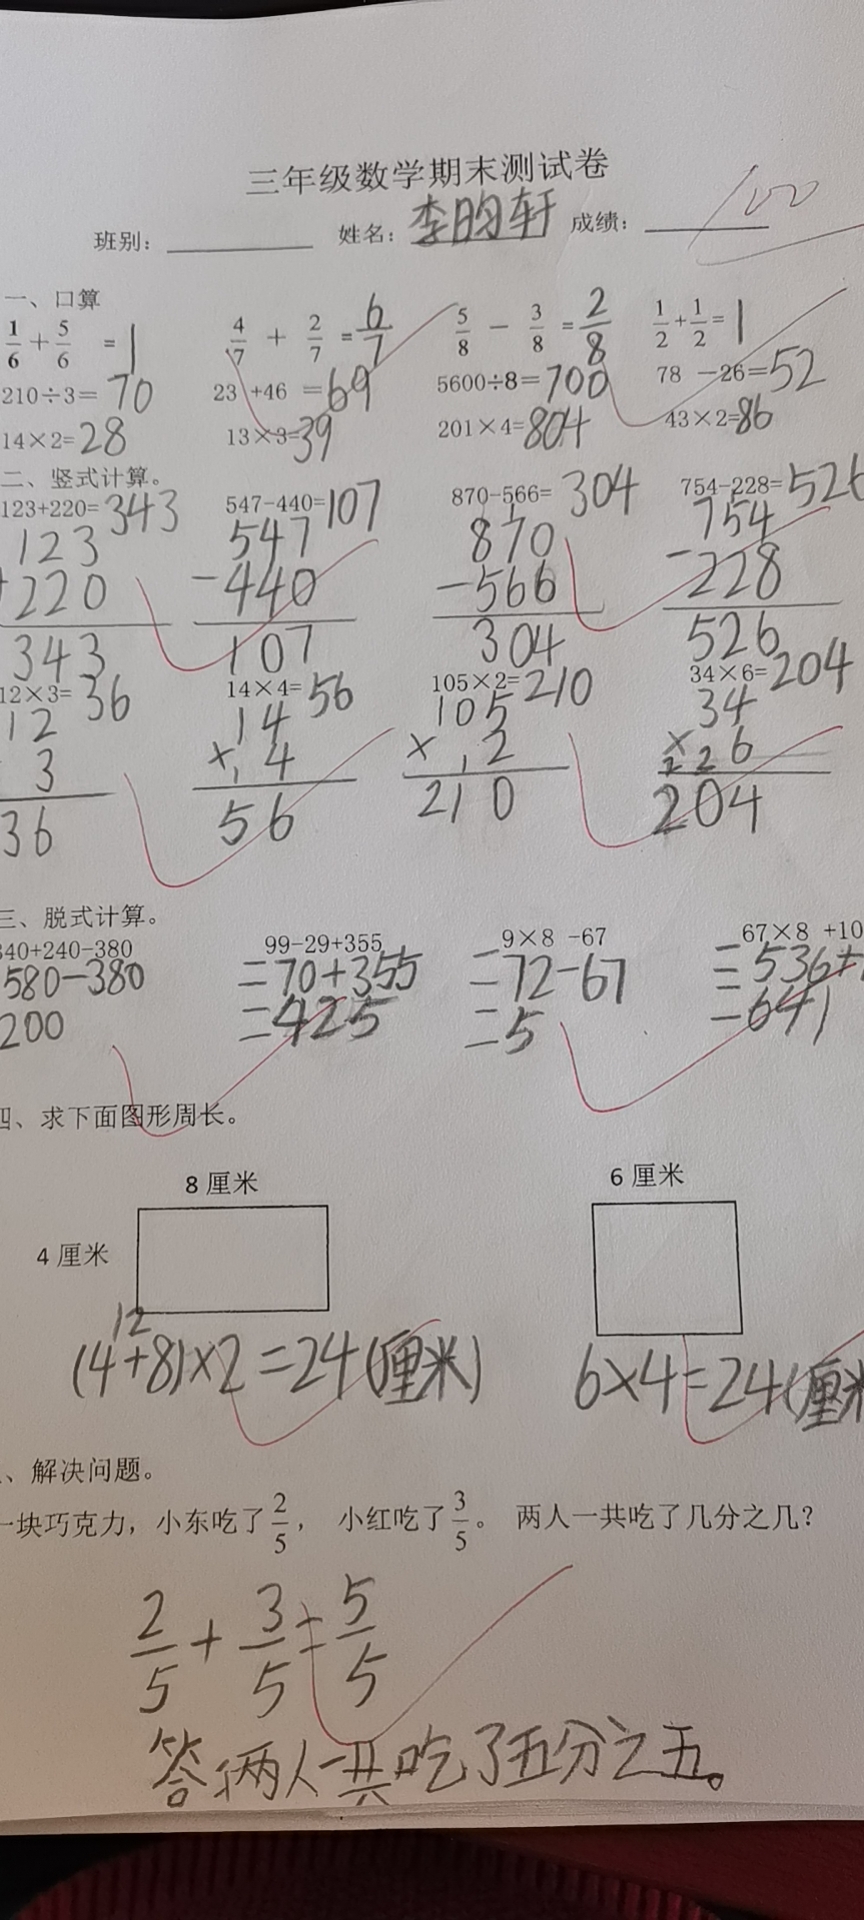 三年级数学期末测试卷
班别：________ 姓名：李昀轩 成绩：100
一、口算
1/6 + 5/6 = 1 4/7 + 2/7 = 6/7 5/8 － 3/8 = 2/8 1/2 + 1/2 = 1
210÷3= 70 23 +46 =69 5600÷8=700 78 －26=52
14×2=28 13×3=39 201×4=804 43×2=86
二、竖式计算。
123+220=343 547-440=107 870-566= 304 754-228=526
123 547 870 754
+220 -440 -566 -228
343 107 304 526
12×3= 36 14×4=56 105×2=210 34×6=204
12 14 105 34
3 ×14 ×12 ×226
36 56 210 204
三、脱式计算。
340+240-380 99-29+355 9×8 -67 67×8 +10
580-380 =70+355 =72-67 =536+
200 =425 =5 =641
四、求下面图形周长。
8 厘米 6 厘米
4 厘米
12
(4+8)×2=24(厘米) 6×4=24(厘米
、解决问题。
一块巧克力，小东吃了2/5， 小红吃了3/5。 两人一共吃了几分之几？
2/5 + 3/5 = 5/5
答:俩人一共吃了五分之五。